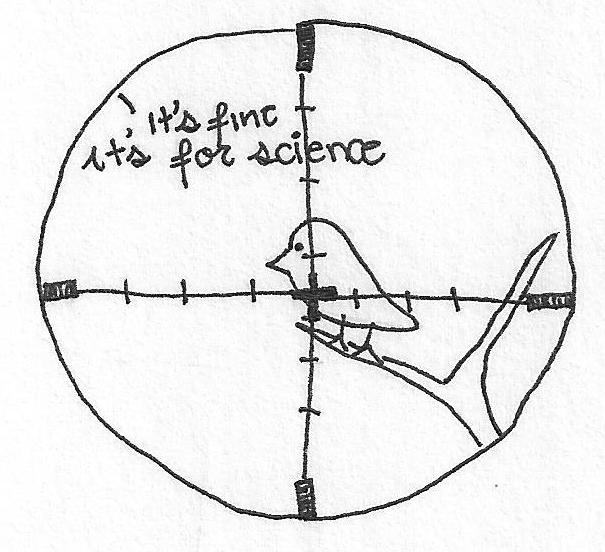 it's fine
it's for science